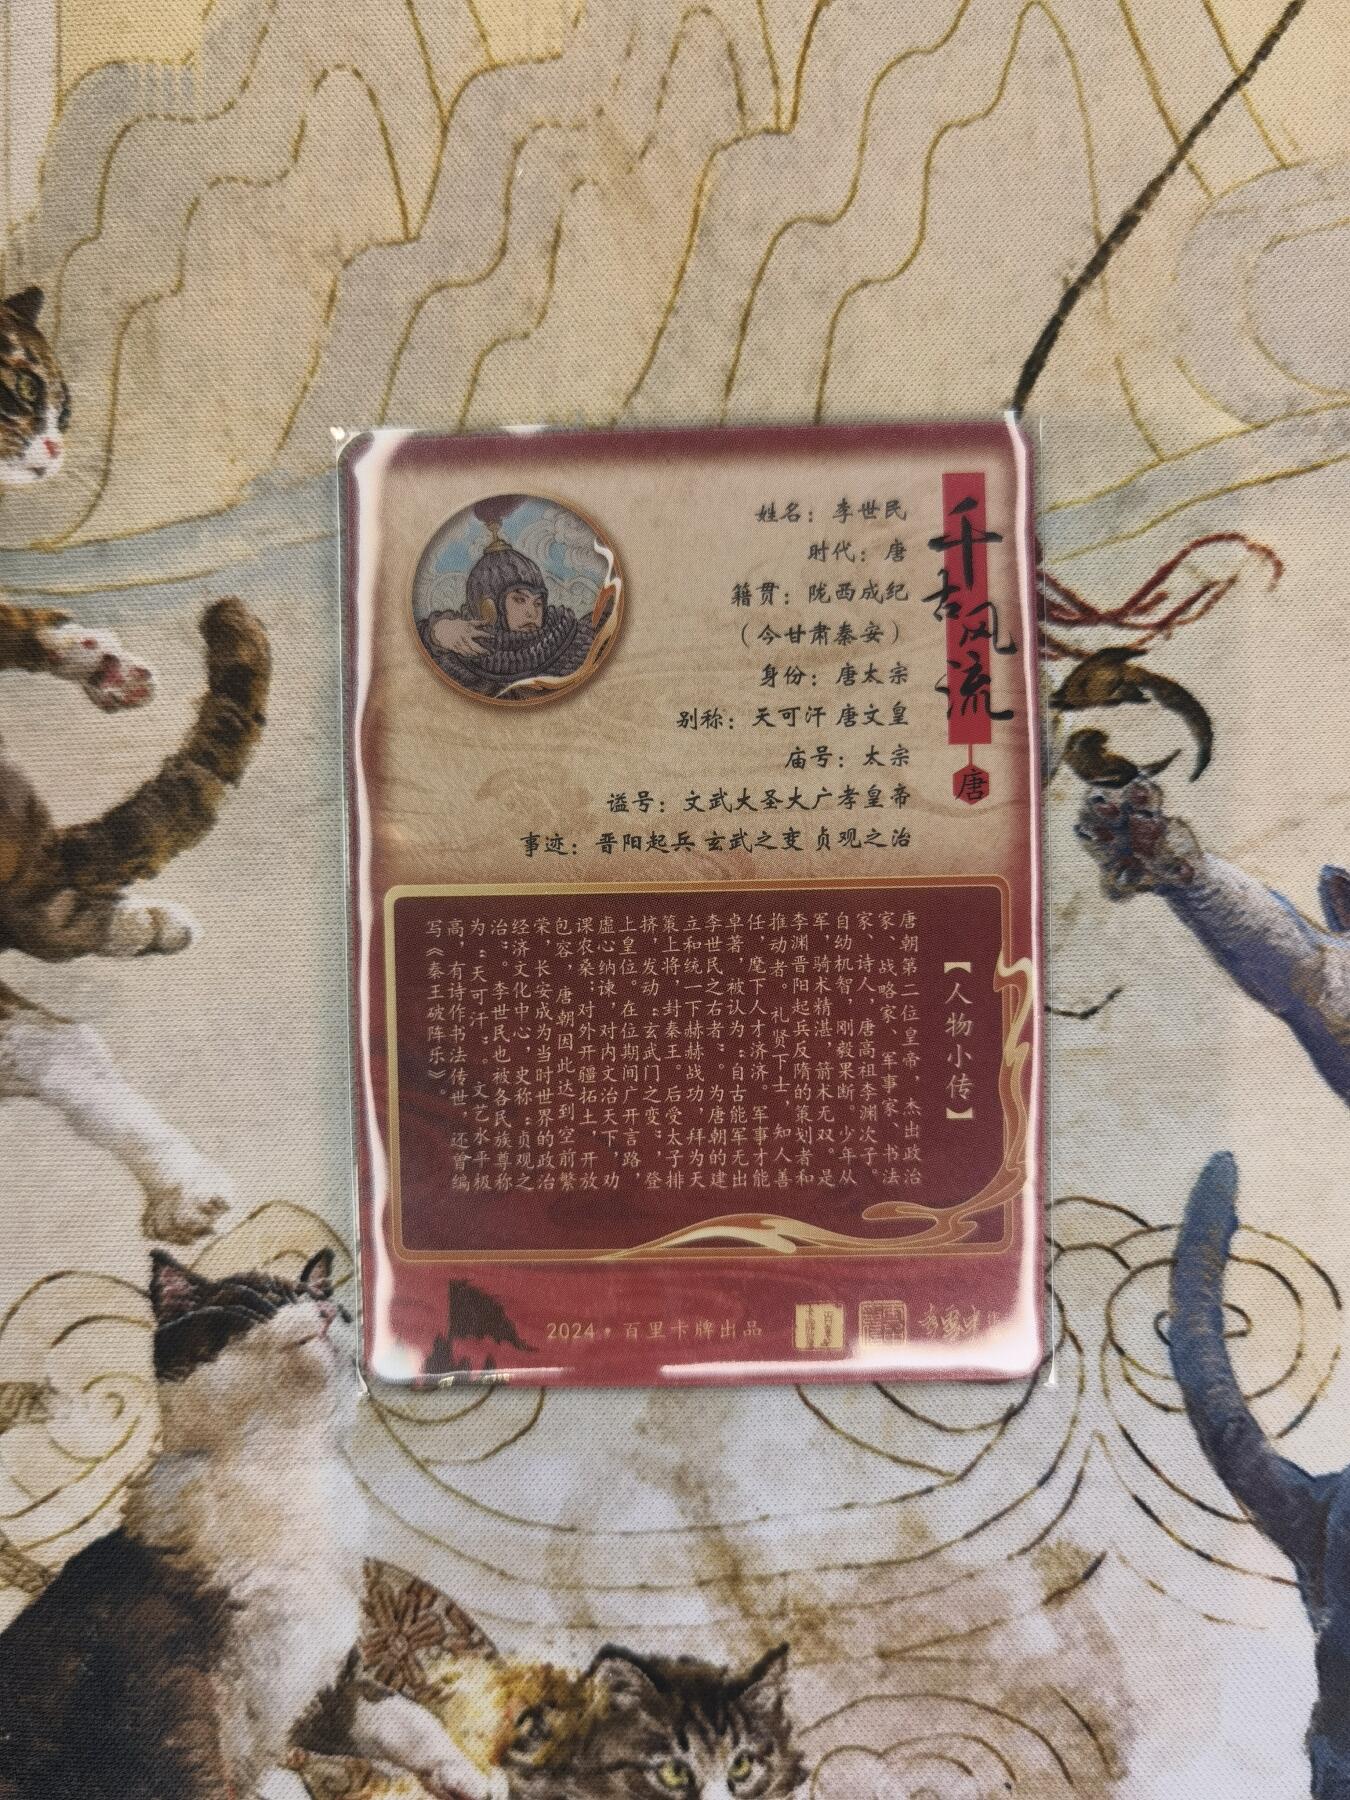 千古风流
唐
姓名：李世民
时代：唐
籍贯：陇西成纪
（今甘肃秦安）
身份：唐太宗
别称：天可汗 唐文皇
庙号：太宗
谥号：文武大圣大广孝皇帝
事迹：晋阳起兵 玄武之变 贞观之治
【人物小传】
唐朝第二位皇帝，杰出政治
家、战略家、军事家、书法
家、诗人，唐高祖李渊次子。
自幼机智，刚毅果断。少年从
军，骑术精湛，箭术无双。是
李渊晋阳起兵反隋的策划者和
推动者。礼贤下士，知人善
任，麾下人才济济。军事才能
卓著，被认为“自古能军无出
李世民之右者”。为唐朝的建
立和统一下赫赫战功，拜为天
策上将，封秦王。后受太子排
挤，发动“玄武门之变”，登
上皇位。在位期间广开言路，
虚心纳谏，对内文治天下，劝
课农桑；对外开疆拓土，开放
包容，唐朝因此达到空前繁
荣，长安成为当时世界的政治
经济文化中心，史称“贞观之
治”。李世民也被各民族尊称
为“天可汗”。文艺水平极
高，有诗作书法传世，还曾编
写《秦王破阵乐》。
2024·百里卡牌出品